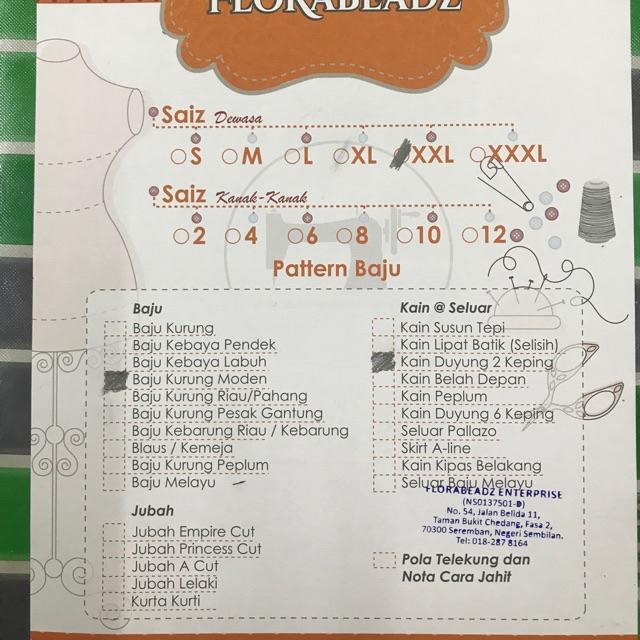 FLORABEADZ
Saiz Dewasa
S M L XL XXL XXXL
Saiz Kanak-Kanak
2 4 6 8 10 12
Pattern Baju
Baju
Baju Kurung
Baju Kebaya Pendek
Baju Kebaya Labuh
Baju Kurung Moden
Baju Kurung Riau/Pahang
Baju Kurung Pesak Gantung
Baju Kebarung Riau / Kebarung
Blaus / Kemeja
Baju Kurung Peplum
Baju Melayu
Jubah
Jubah Empire Cut
Jubah Princess Cut
Jubah A Cut
Jubah Lelaki
Kurta Kurti
Kain @ Seluar
Kain Susun Tepi
Kain Lipat Batik (Selisih)
Kain Duyung 2 Keping
Kain Belah Depan
Kain Peplum
Kain Duyung 6 Keping
Seluar Pallazo
Skirt A-line
Kain Kipas Belakang
Seluar Baju Melayu
FLORABEADZ ENTERPRISE
(NS0137501-D)
No. 54, Jalan Belida 11,
Taman Bukit Chedang, Fasa 2,
70300 Seremban, Negeri Sembilan.
Tel: 018-287 8164
Pola Telekung dan
Nota Cara Jahit